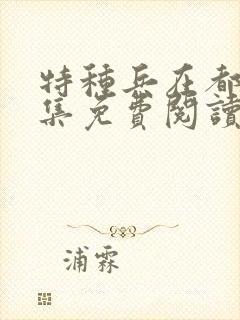 特種兵在都
集免費閱讀
浦霖